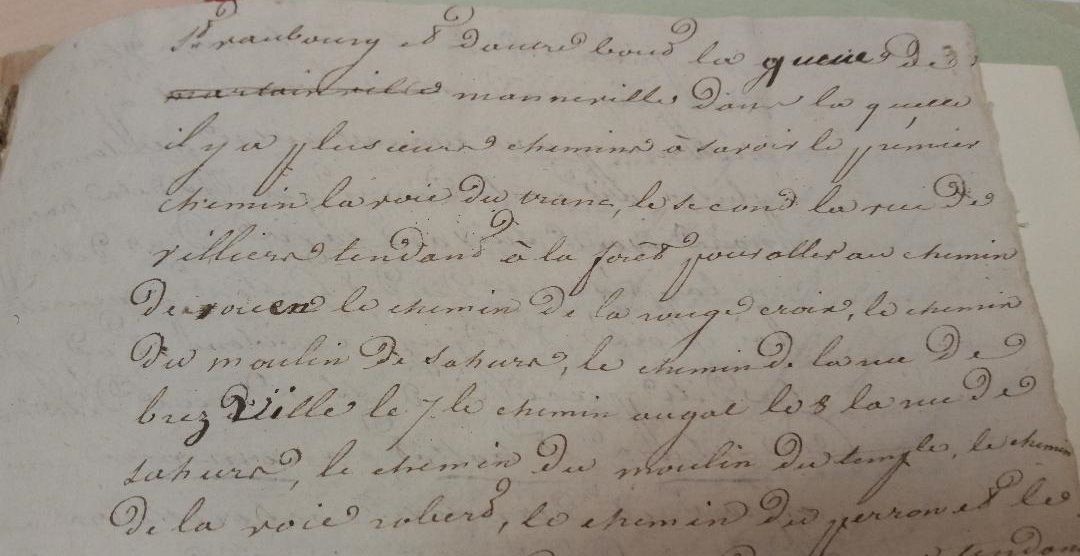 St vaubourg et dautre bout la queue de
martainville manneville dans la quelle
il y a plusieurs chemins à savoir le premier
chemin la voie du tranc, le second la rue de
villiers tendant à la forêt pour aller au chemin
de rouen le chemin de la rouge croix, le chemin
du moulin de sahurs, le chemin de la rue de
brezdville le 7 le chemin augal le 8 la rue de
sahurs, le chemin du moulin du temple, le chemin
de la voie robert, le chemin du perron et le